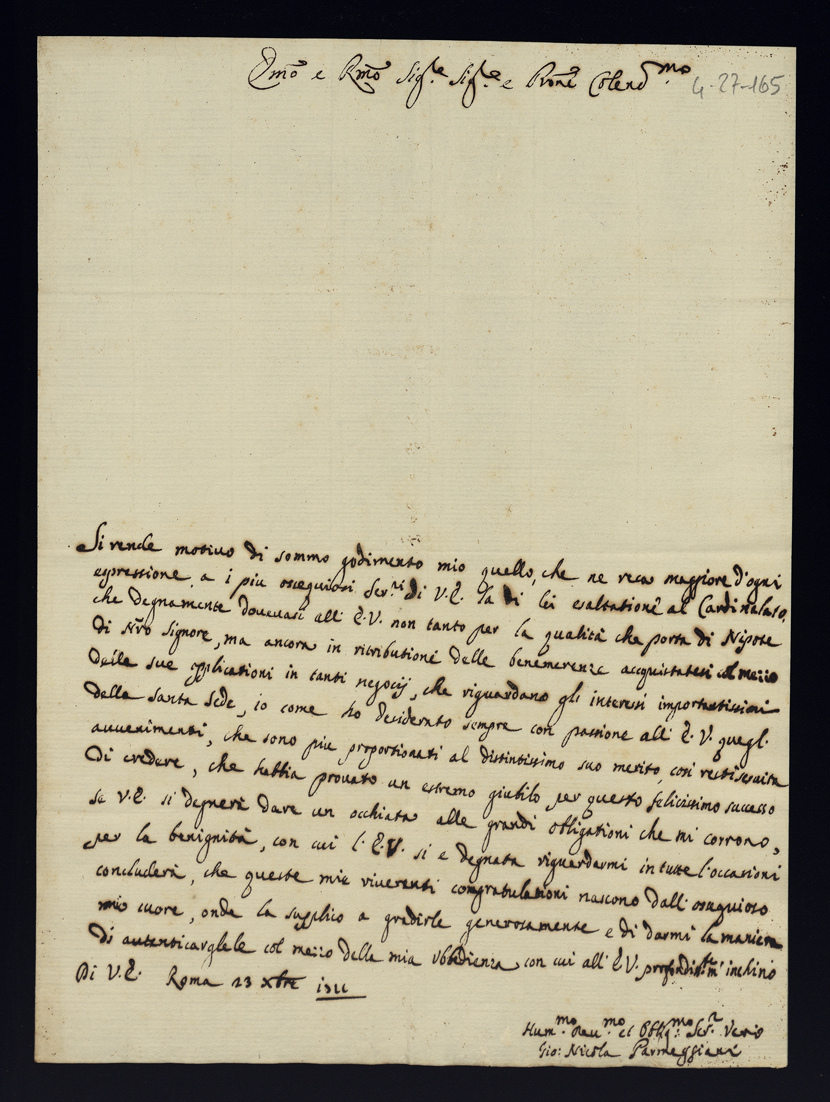 Emo e Rmo Sigre Sigre e Prone Colendmo
4-27-165
Si rende motivo di sommo godimento mio quello, che ne reca maggiore d'ogni
espressione a i piu ossequiosi Ser.ri di V.E. la di lei esaltatione al Cardinalato,
che degnamente dovevasi all' E.V. non tanto per la qualità che porta di Nipote
di Nro Signore, ma ancora in ritributione delle benemerenze acquistatesi col mezzo
delle sue applicationi in tanti negocij, che riguardano gli interessi importantissimi
della Santa Sede, io come ho desiderato sempre con passione all' E.V. quegl'
avvenimenti, che sono piu proportionati al distintissimo suo merito, così resti servita
di credere, che habbia provato un estremo giubilo per questo felicissimo successo
se V.E. si degnerà dare un occhiata alle grandi obligationi che mi corrono,
per la benignità, con cui l'E.V. si è degnata riguardarmi in tutte l'occasioni
concluderà, che queste mie riverenti congratulationi nascono dall' ossequioso
mio cuore, onde la supplico a gradirle generosamente e di darmi la maniera
di autenticarglele col mezzo della mia ubbidienza, con cui all' E.V. profondiss.te m'inchino
Di V.E. Roma 23 Xbre
Hum.mo Deu.mo et Obblig.mo Ser.r Vero
Gio: Nicola Parmeggiani